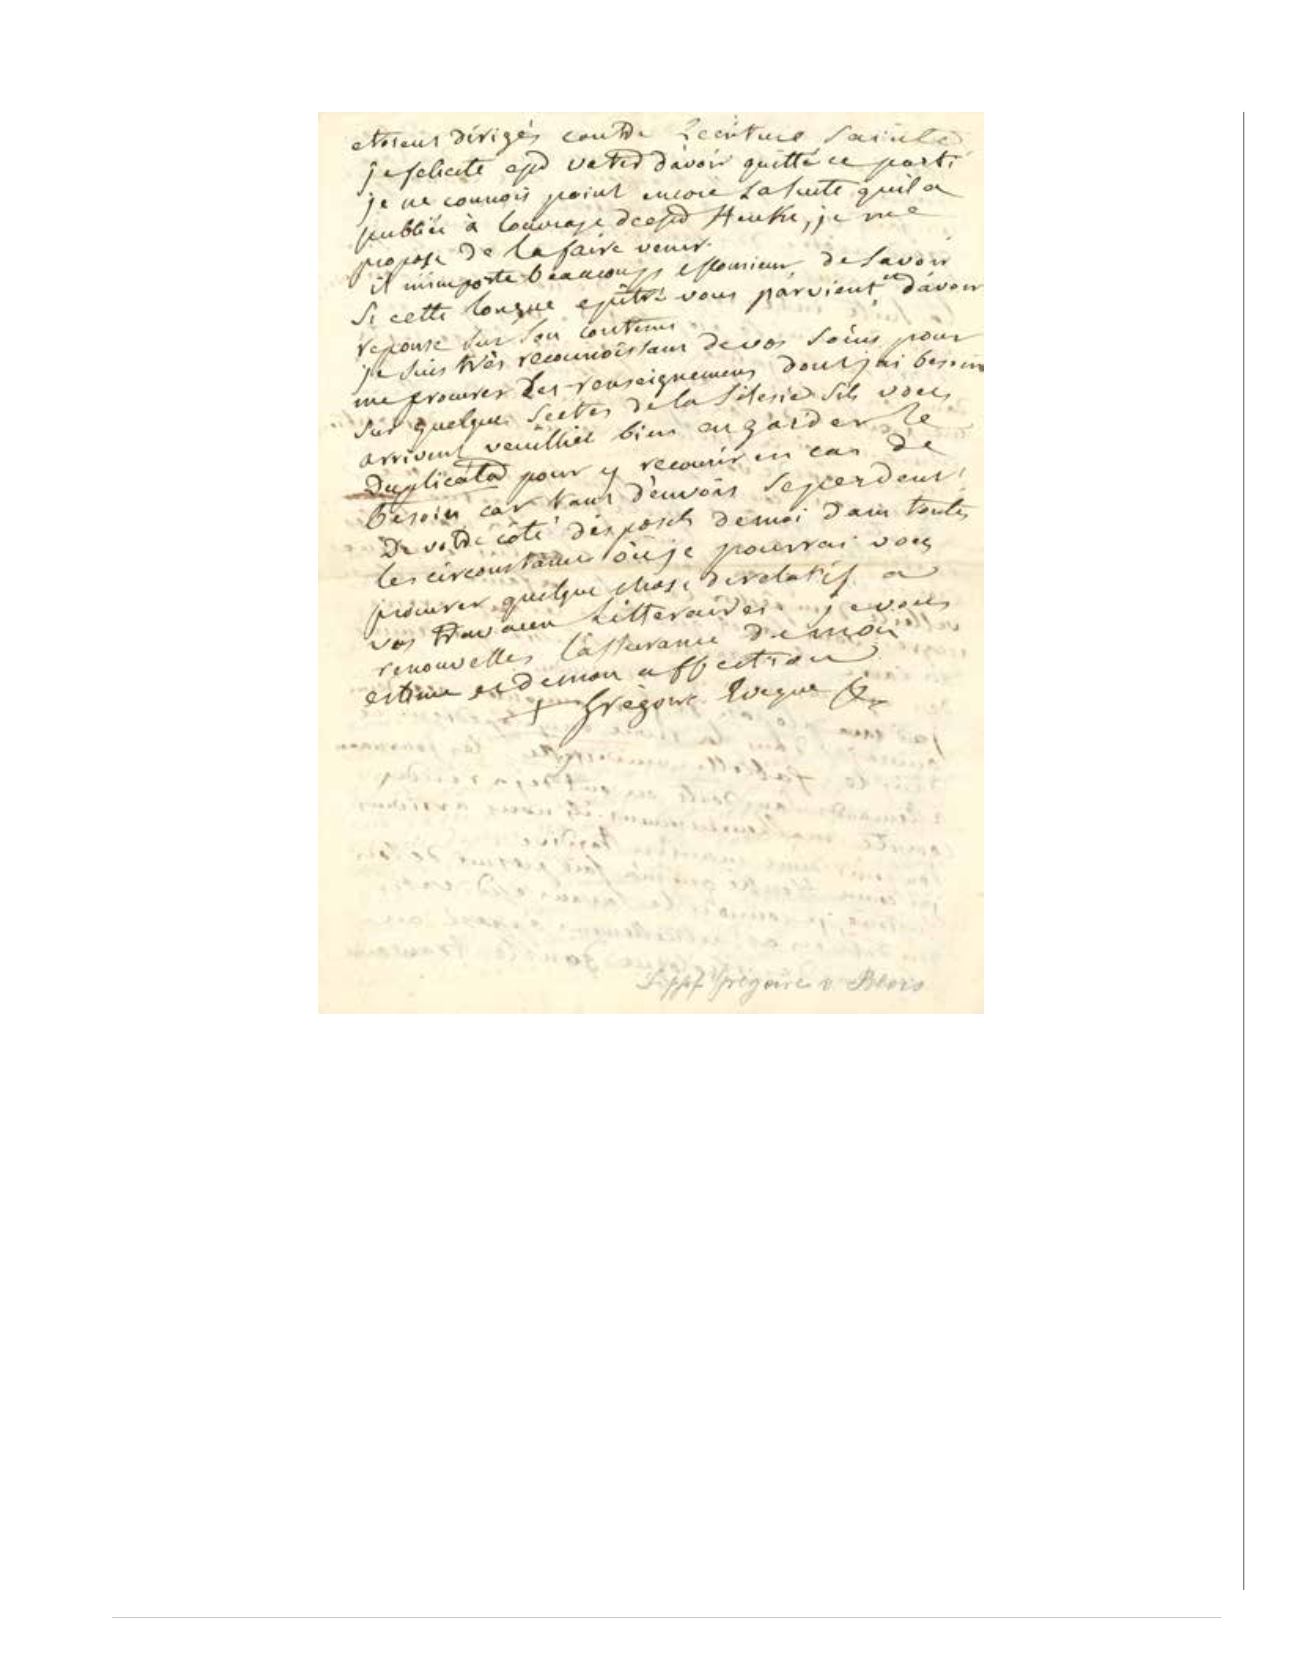 etoient dirigés contre Lecriture Sainte
je felicite mr vater d'avoir quitté ce parti
je ne connois point encore La suite quil a
publiée à louvrage de mr Henke, je me
propose de la faire venir.
il m'importe beaucoup monsieur, de savoir
Si cette longue epitre vous parvient et d'avoir
reponse sur son contenu
je suis très reconnoissant de vos soins pour
me procurer des renseignemens dont jai besoin
sur quelques Sectes de la Silesie Sils vous
arrivent veuilliez bien en garder le
Duplicata pour y recourir en cas de
besoin car tant d'envois se perdent!
De votre côté disposés de moi dans toutes
les circonstances où je pourrai vous
procurer quelque chose de relatif a
vos travaux Litteraires je vous
renouvelles l'assurance de mon
estime et de mon affection
+ Grégoire Eveque
Grégoire v. Blois